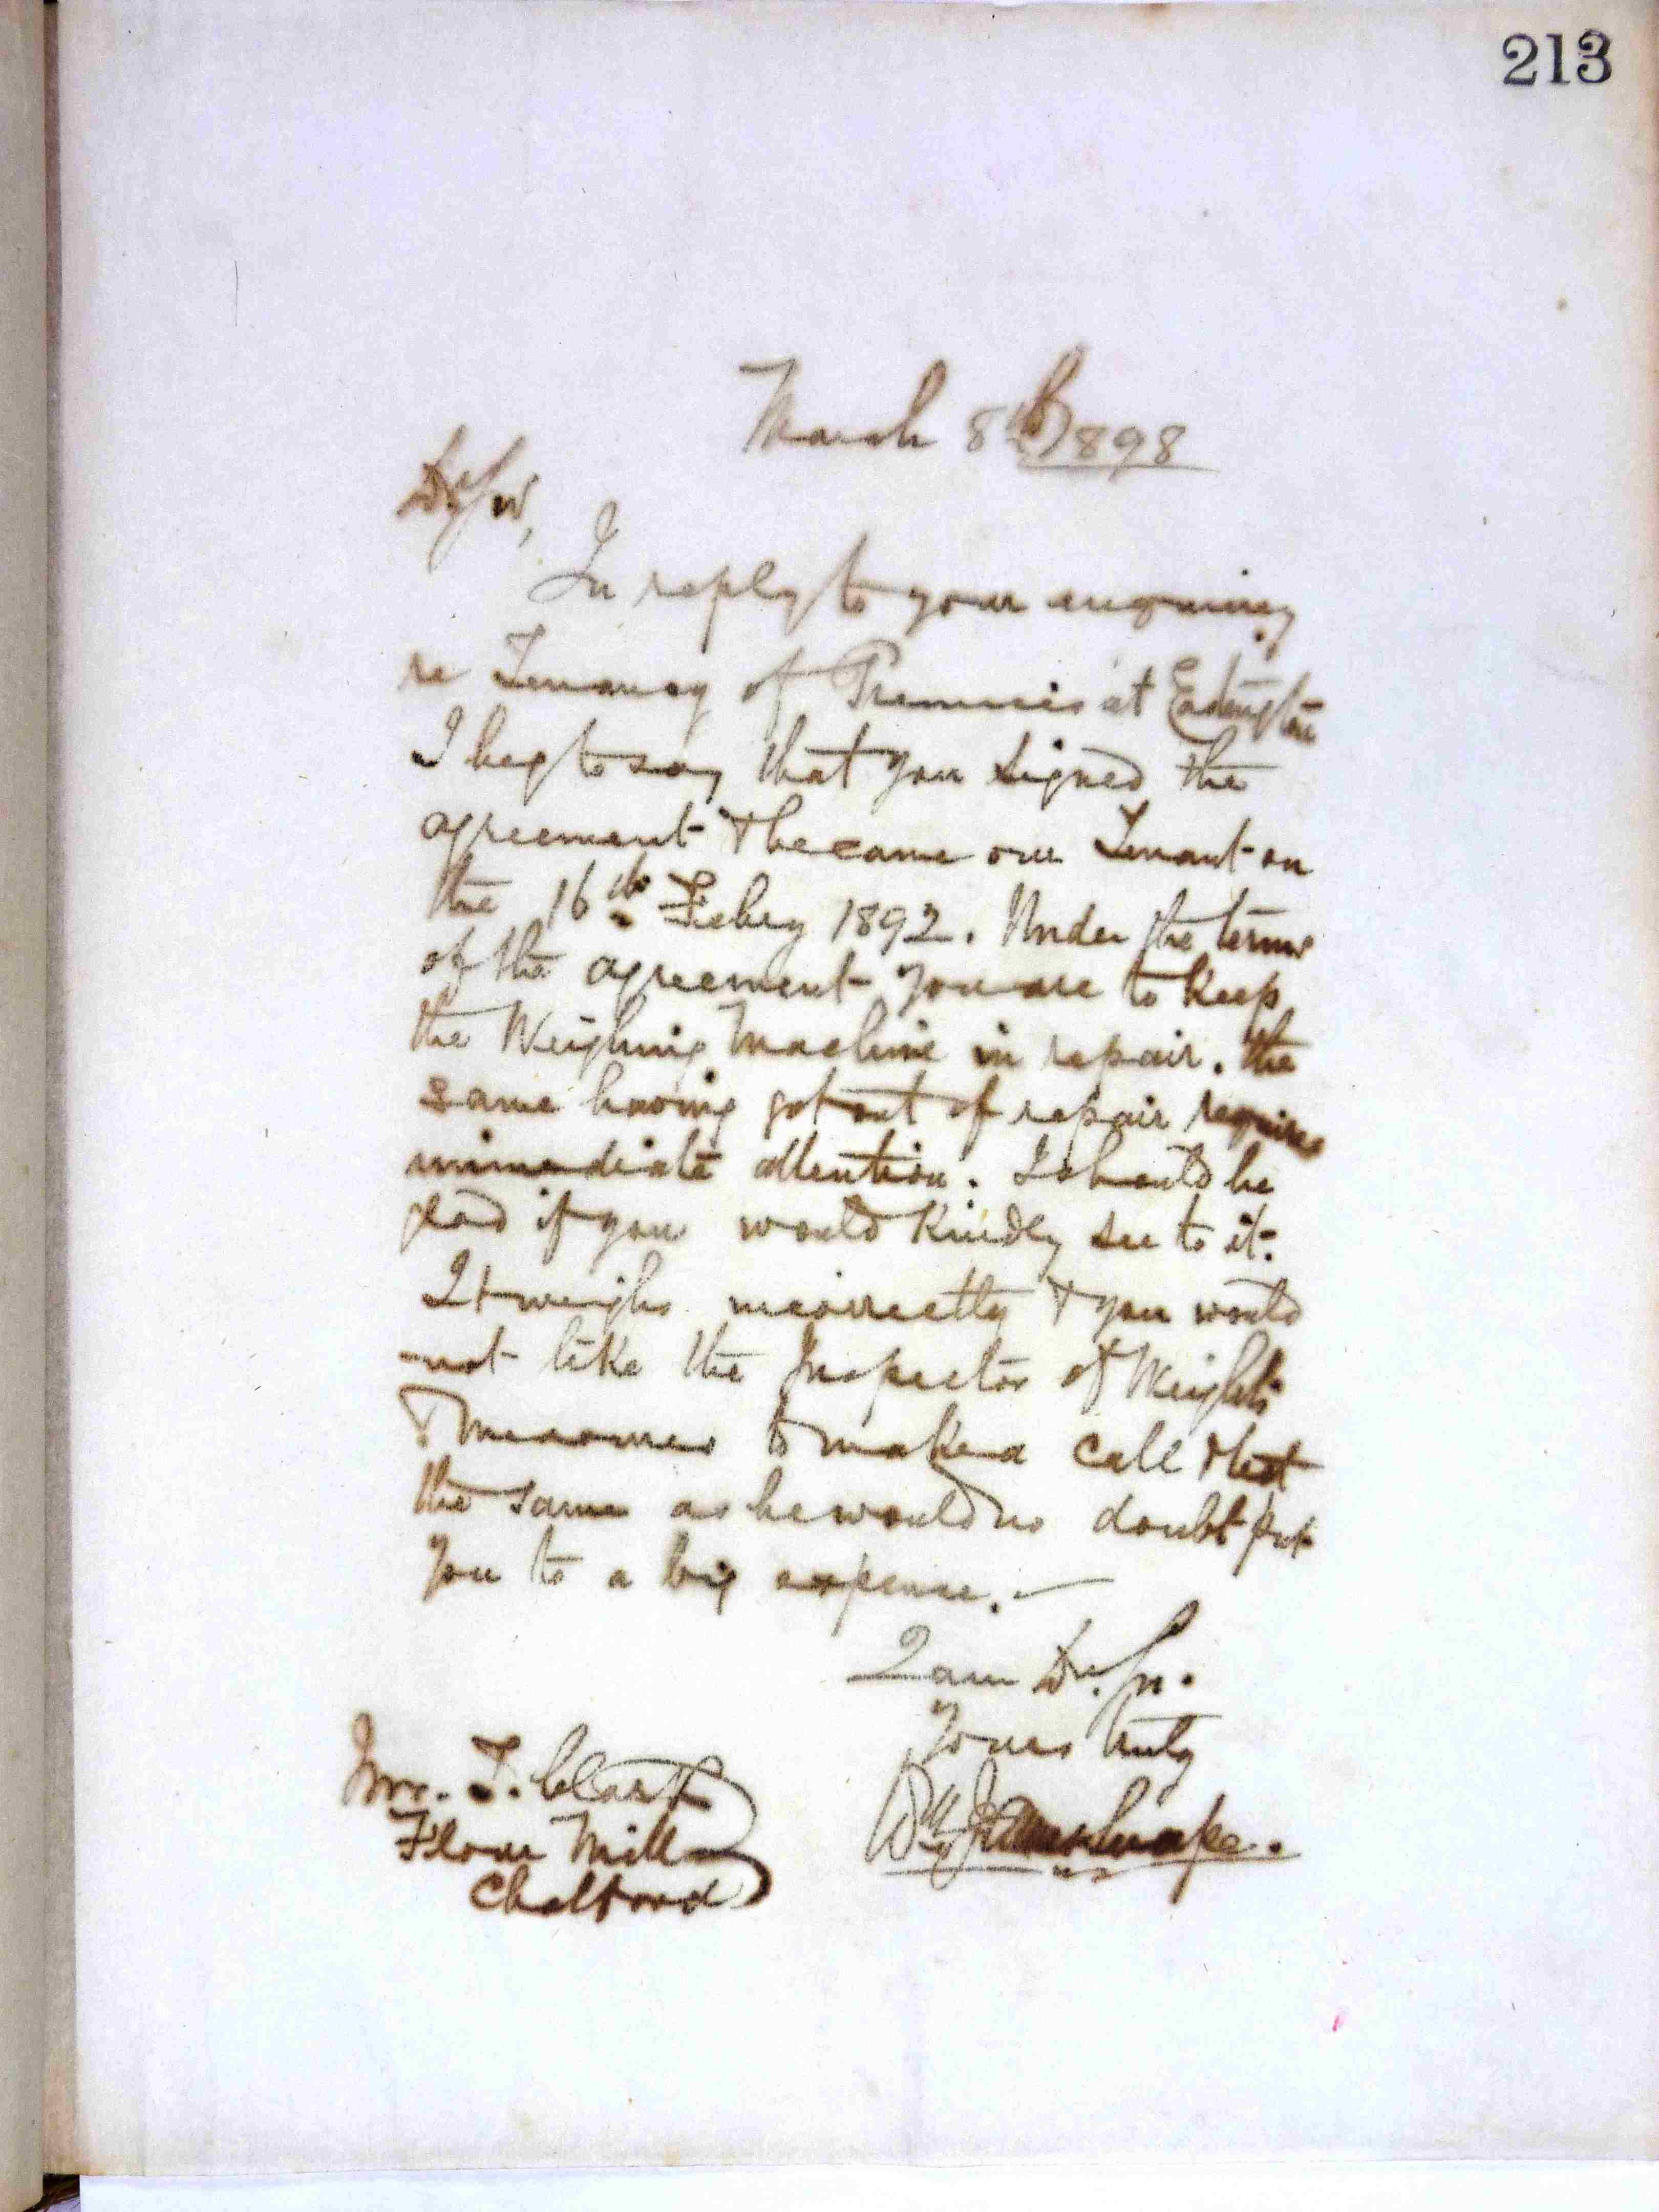 213
March 8th 1898
Dr Sir,
In reply to your enquiry
re Tenancy of Premises at Edington
I beg to say that you signed the
agreement & became our Tenant on
the 16th Febry 1892. Under the terms
of the agreement you are to keep
the Weighing Machine in repair. The
same having got out of repair requires
immediate attention. I should be
glad if you would kindly see to it.
It weighs incorrectly & you would
not like the Inspector of Weights
& Measures to make a call & test
the same as he would no doubt put
you to a big expense.—
I am Dr. Sir.
Yours truly
Wm
Mr. T. Clark
Flour Mills
Chalford